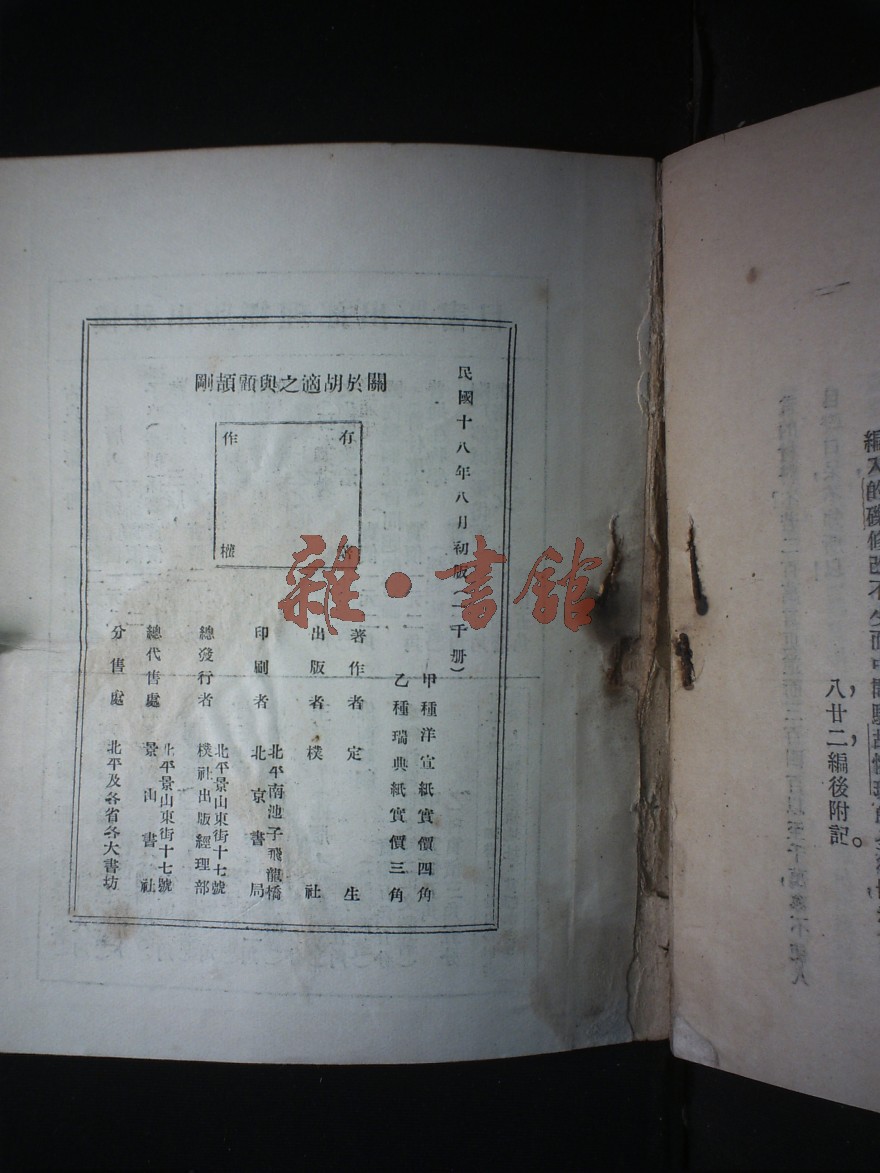 編入的
八廿二編後附記。
民國十八年八月初版（一千册）
甲種洋宣紙實價四角
乙種瑞典紙實價三角
關於胡適之與顧頡剛
有
作
權
著作者 定生
出版者 樸社
北平南池子飛龍橋
印刷者 北京書局
北平景山東街十七號
總發行者 樸社出版經理部
北平景山東街十七號
總代售處 景山書社
分售處 北平及各省各大書坊
雜·書館